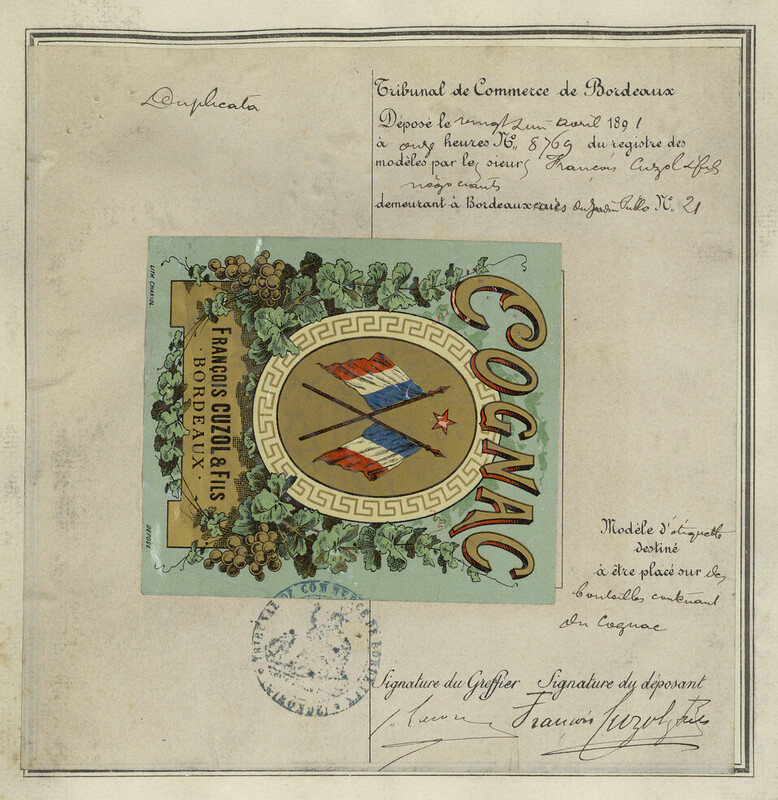 Duplicata
Tribunal de Commerce de Bordeaux
Déposé le vingt un avril 1891
à onze heures No. 8769 du registre des
modèles par les sieurs François Cuzol & fils
négociants
demeurant à Bordeaux No. 21
LITH. CHARIOL
COGNAC
FRANÇOIS CUZOL & FILS
· BORDEAUX ·
DÉPOSÉ
Modèle d'étiquette
destiné
à être placé sur des
bouteilles contenant
du Cognac
TRIBUNAL DE COMMERCE DE BORDEAUX
Signature du Greffier Signature du déposant
François Cuzol & fils